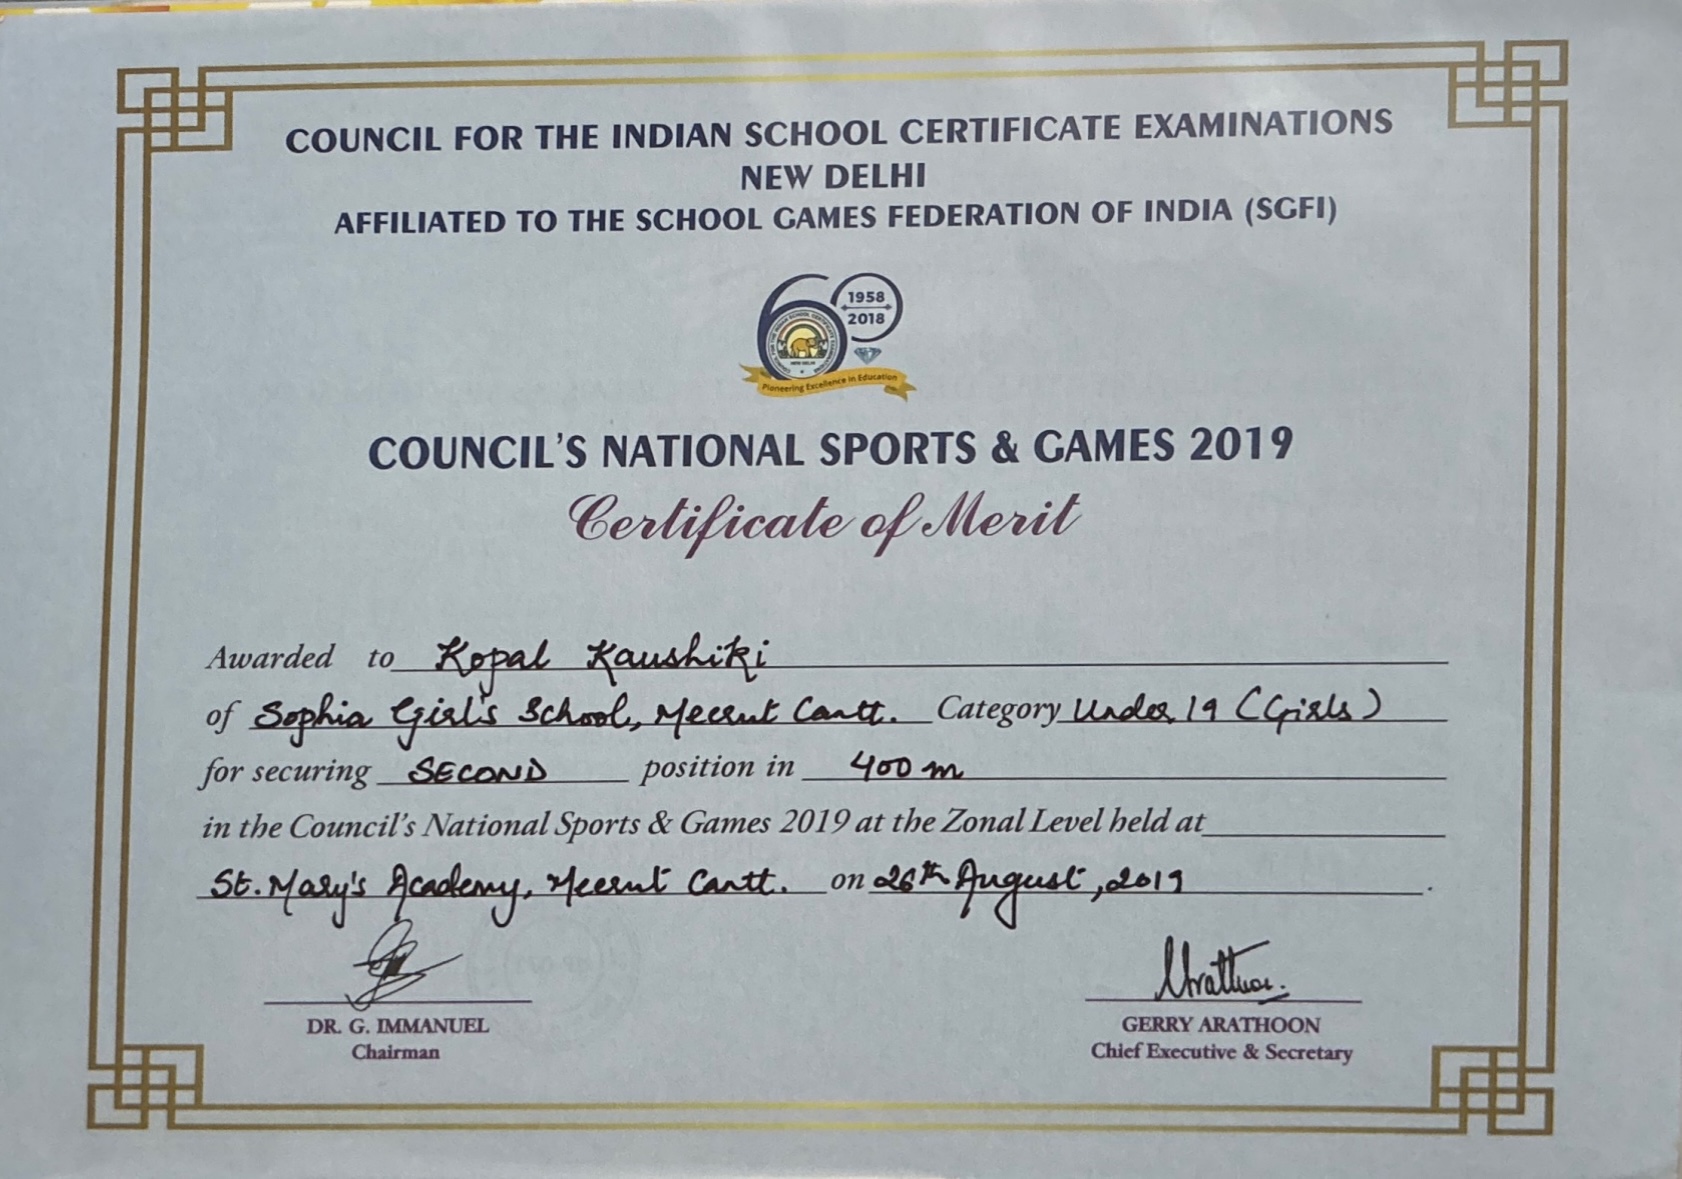 COUNCIL FOR THE INDIAN SCHOOL CERTIFICATE EXAMINATIONS
NEW DELHI
AFFILIATED TO THE SCHOOL GAMES FEDERATION OF INDIA (SGFI)
60
1958
2018
NEW DELHI
Pioneering Excellence in Education
COUNCIL'S NATIONAL SPORTS & GAMES 2019
Certificate of Merit
Awarded to Kopal Kaushiki
of Sophia Girl's School, Meerut Cantt. Category Under 19 (Girls)
for securing SECOND position in 400 m
in the Council's National Sports & Games 2019 at the Zonal Level held at
St. Mary's Academy, Meerut Cantt. on 26th August, 2019.
DR. G. IMMANUEL
Chairman
GERRY ARATHOON
Chief Executive & Secretary